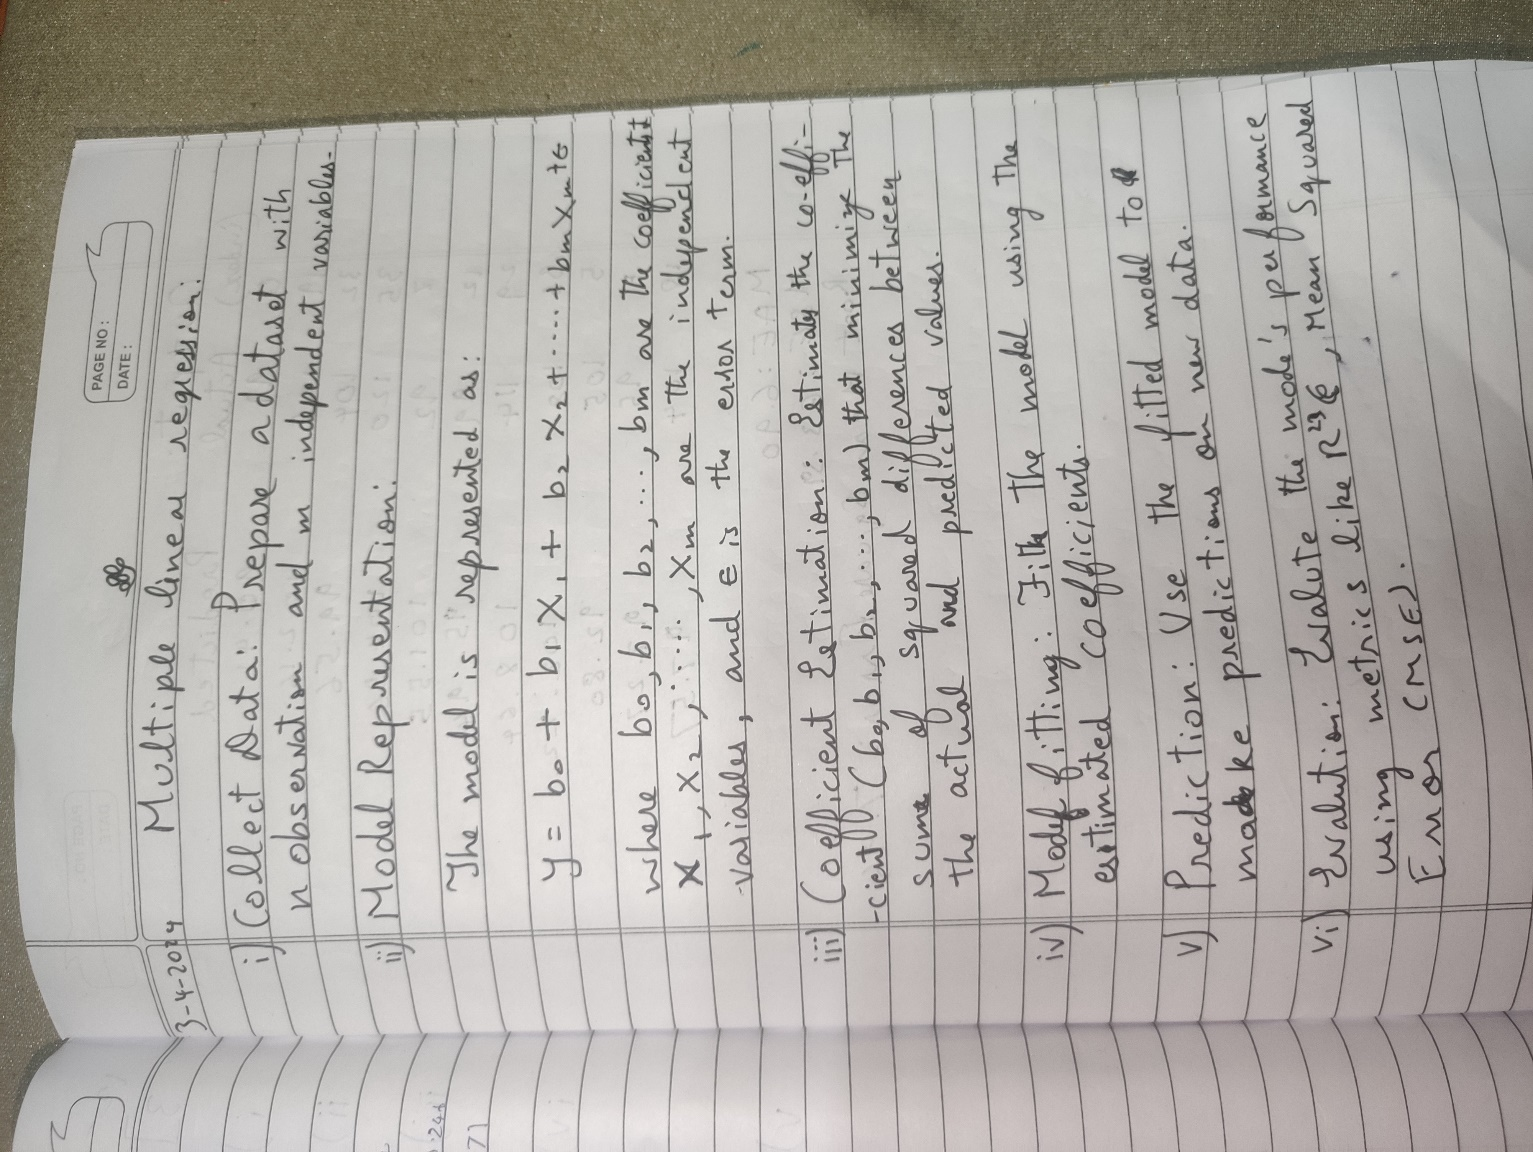 PAGE NO :
DATE :
3-4-2024 Multiple linear regression:
i) Collect Data: Prepare a dataset with
n observation and m independent variables.
ii) Model Representation:
The model is represented as:
y = b0 + b1 X1 + b2 X2 + ..... + bm Xm + ϵ
where b0, b1, b2, ...., bm are the coefficients
X1, X2, ...., Xm are the independent
variables, and ϵ is the error term.
iii) Coefficient Estimation: Estimate the co-effi-
-cient (b0, b1, b2, ...., bm) that minimize the
sum of squared differences between
the actual and predicted values.
iv) Model fitting: Fit the model using the
estimated coefficients.
v) Prediction: Use the fitted model to
make predictions on new data.
vi) Evalution: Evalute the mode's performance
using metrics like R², Mean Squared
Error (MSE).
71